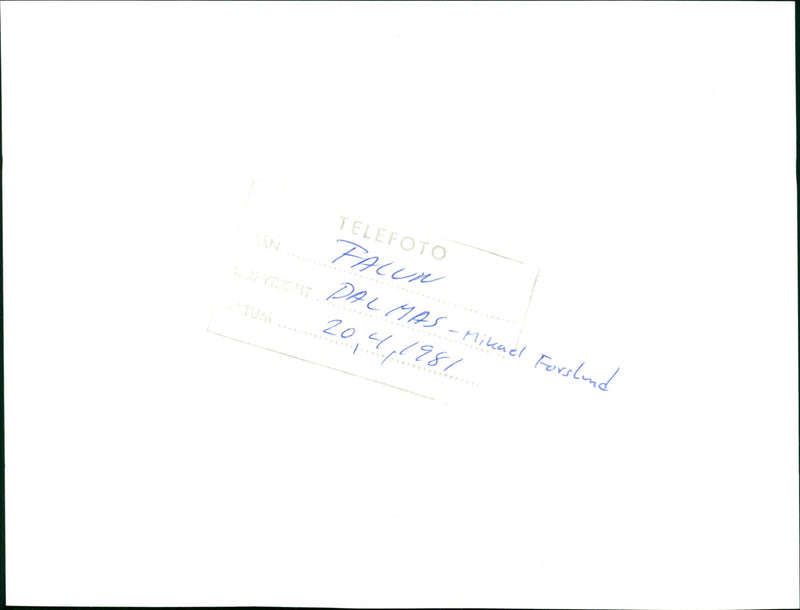 TELEFOTO
FALUN
COPYRIGHT DALMAS - Mikael Forslund
DATUM 20,4,1981